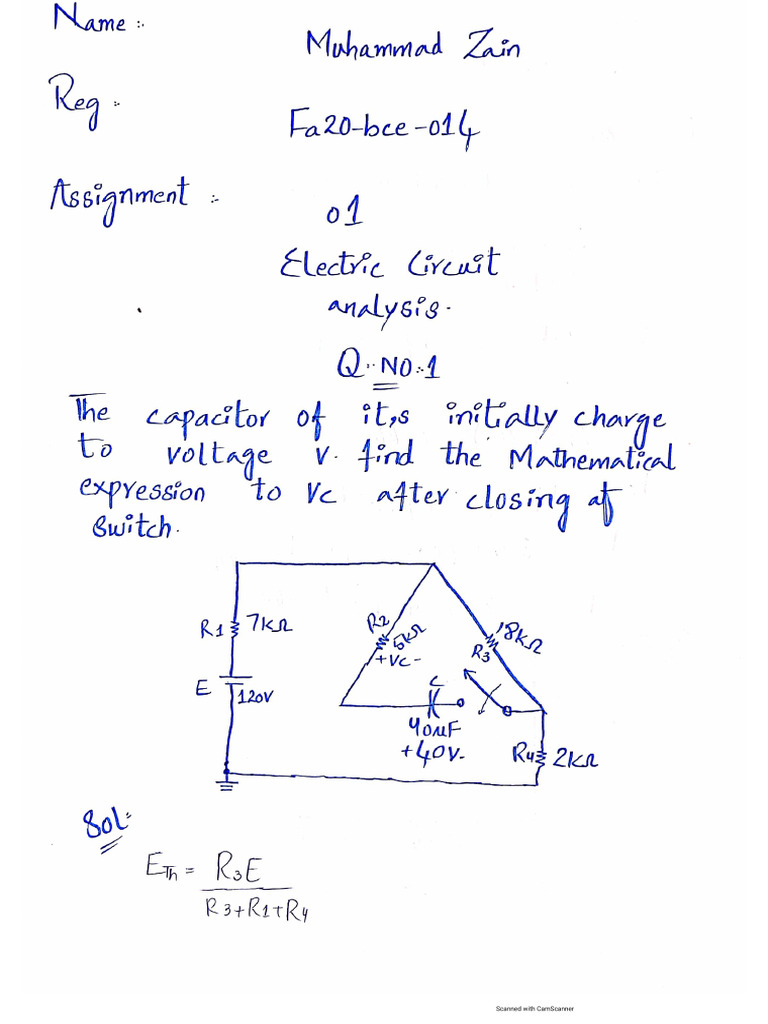 Name :-
Muhammad Zain
Reg :-
Fa20-bce-014
Assignment :-
01
Electric Circuit
analysis.
Q.. NO:-1
The capacitor of it,s initially charge
to voltage v. find the Mathematical
expression to Vc after closing of
switch.
R1 7kΩ
R2 5kΩ
18kΩ
R3
+Vc-
E 120V
C
40µF
+40V-
R4 2kΩ
Sol:-
ETh = R3E
R3+R1+R4
Scanned with CamScanner